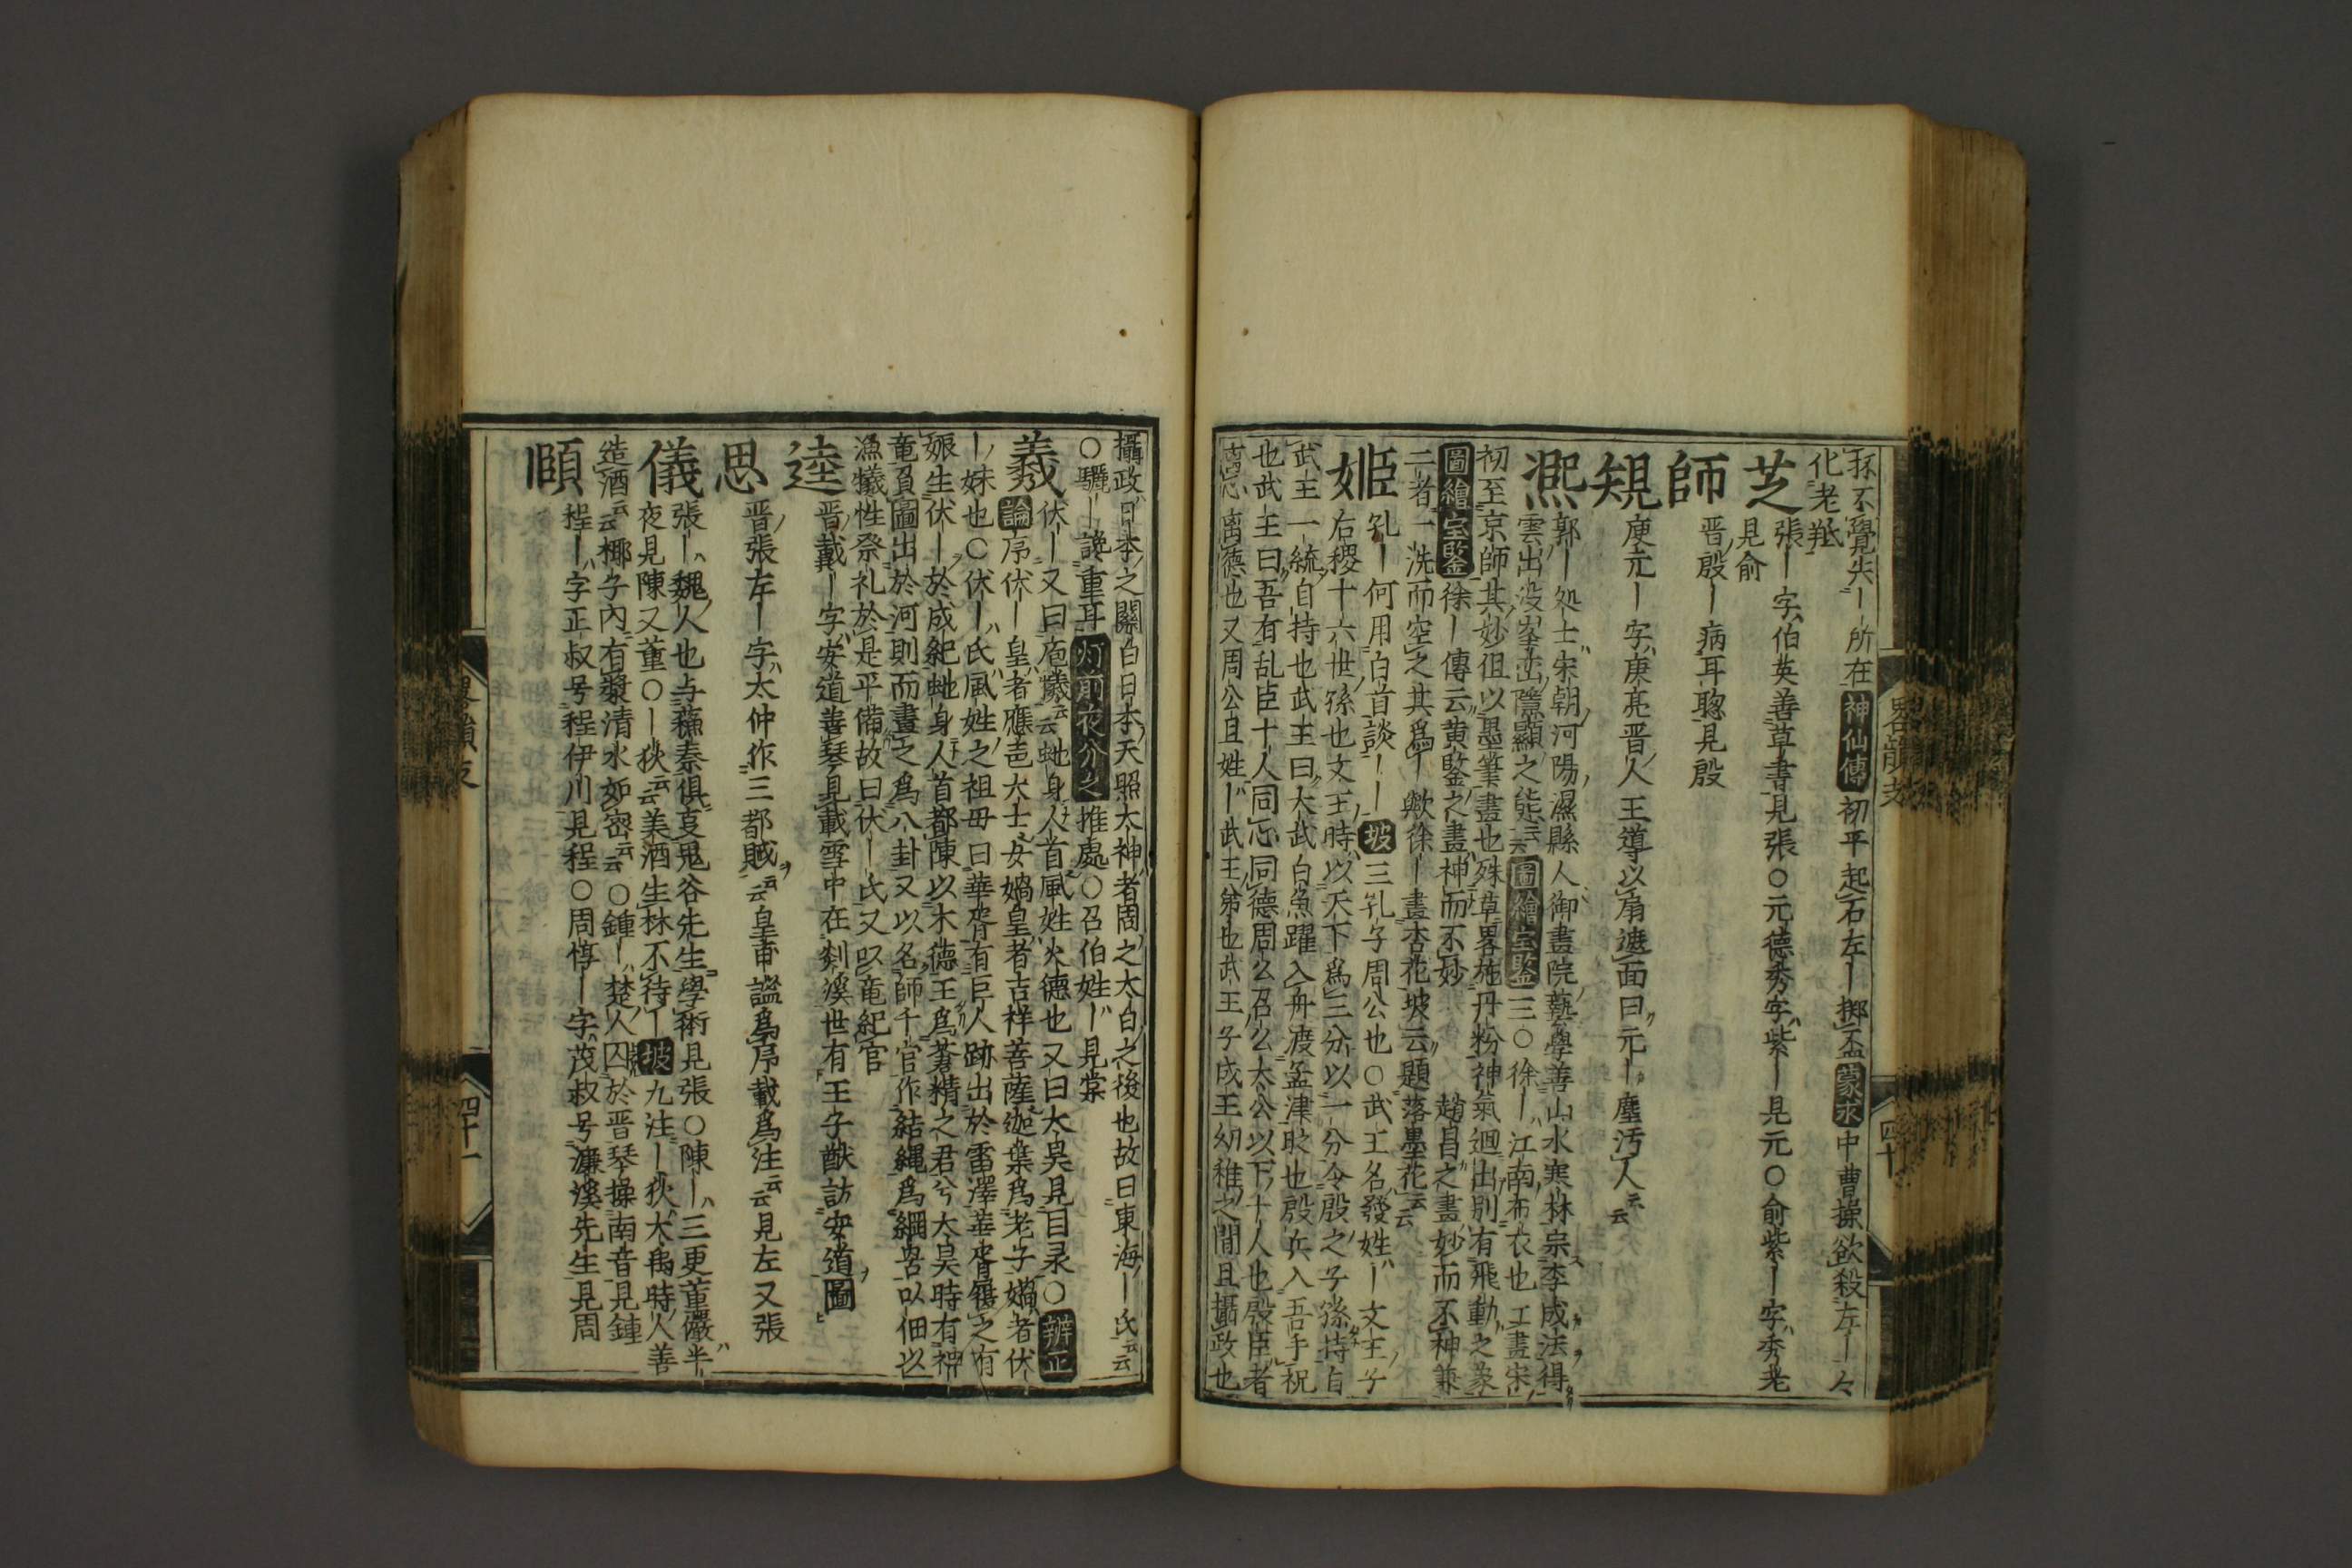 抔不覺失｜所在神仙傳初平起石左｜擲盃蒙求中曹操欲殺左｜々
化老羝
芝
張｜字伯英善草書見張○元德秀字紫｜見元○俞紫｜字秀老
見俞
師
晋殷｜病耳聦見殷
規
庾元｜字庾亮晋人王導以扇遮面曰元｜塵汚人云云
熈
郭｜処士宋朝河陽濕縣人御畫院藝學善山水寒林宗李成法得
雲出没峯岀隱顯之態云云圖繪宝鑒三○徐｜江南布衣也工畫宋
初至京師其妙但以墨筆畫也殊草畧施丹粉神氣迥出別有飛動之象
圖繪宝鑒徐｜傳云黄鑒之畫神而不妙趙昌之畫妙而不神兼
二者一洗而空之其爲｜歟徐｜畫杏花坡云題落墨花云云
姬
孔｜何用白首談｜｜坡三孔子周公也○武王名發姓｜文王子
右稷十六世孫也文王時以天下爲三分以一分令殷之子孫持自
武王一統自持也武王曰大武白魚躍入舟渡孟津時也殷兵入吾手祝
也武王曰吾有乱臣十人同心同德周公召公太公以下十人也殷臣者
離德也又周公旦姓｜武王弟也武王子成王幼稚之間且攝政也
畧韻支
四十
攝政日本之關白日本天照大神者周之太白之後也故曰東海｜氏云云
○驪｜讒重耳灯前夜分之推處○召伯姓｜見棠
羲
伏｜又曰庖犠云云虵身人首風姓火德也又曰太昊見目录○辨正
論序伏｜皇者應邑大士女媧皇者吉祥菩薩迦葉爲老子媧者伏
｜妹也○伏｜氏風姓之祖毋曰華胥有巨人跡出於雷澤華胥履之有
娠生伏｜於成紀虵身人首都陳以木德王爲蒼精之君兮太昊時有神
竜負圖出於河則而畫之爲八卦又以名師千官作結繩爲綱罟以佃以
漁犠牲祭礼於是平備故曰伏｜氏又以竜紀官
逵
晋戴｜字安道善琴見戴雪中在剡溪世有王子猷訪安道圖
思
晋張左｜字太仲作三都賦云云皇甫謐爲序載爲注云云見左又張
儀
張｜魏人也与蘓秦俱支鬼谷先生學術見張○陳｜三更董儼半
夜見陳又董○｜狄云云美酒生林不待｜坡九注｜狄大禹時人善
造酒云云椰子内有漿清水如密云云○鍾｜楚人囚於晋琴操南音見鍾
頤
程｜字正叔号程伊川見程○周惇｜字茂叔号濂溪先生見周
畧韻支
四十一